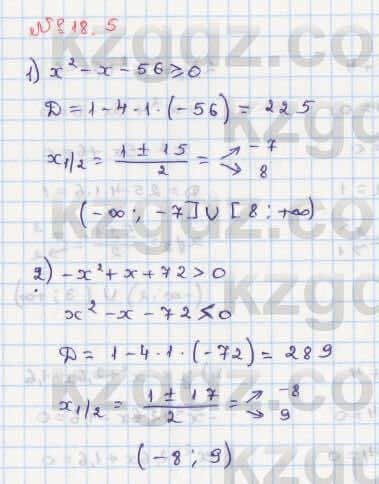 №18.5
1) x² - x - 56 ≥ 0
D = 1 - 4 · 1 · (-56) = 225
x₁/₂ = (1 ± 15)/2 = ↗ -7 ↘ 8
(-∞; -7] ∪ [8; +∞)
2) -x² + x + 72 > 0
x² - x - 72 < 0
D = 1 - 4 · 1 · (-72) = 289
x₁/₂ = (1 ± 17)/2 = ↗ -8 ↘ 9
(-8; 9)
kzgdz.com